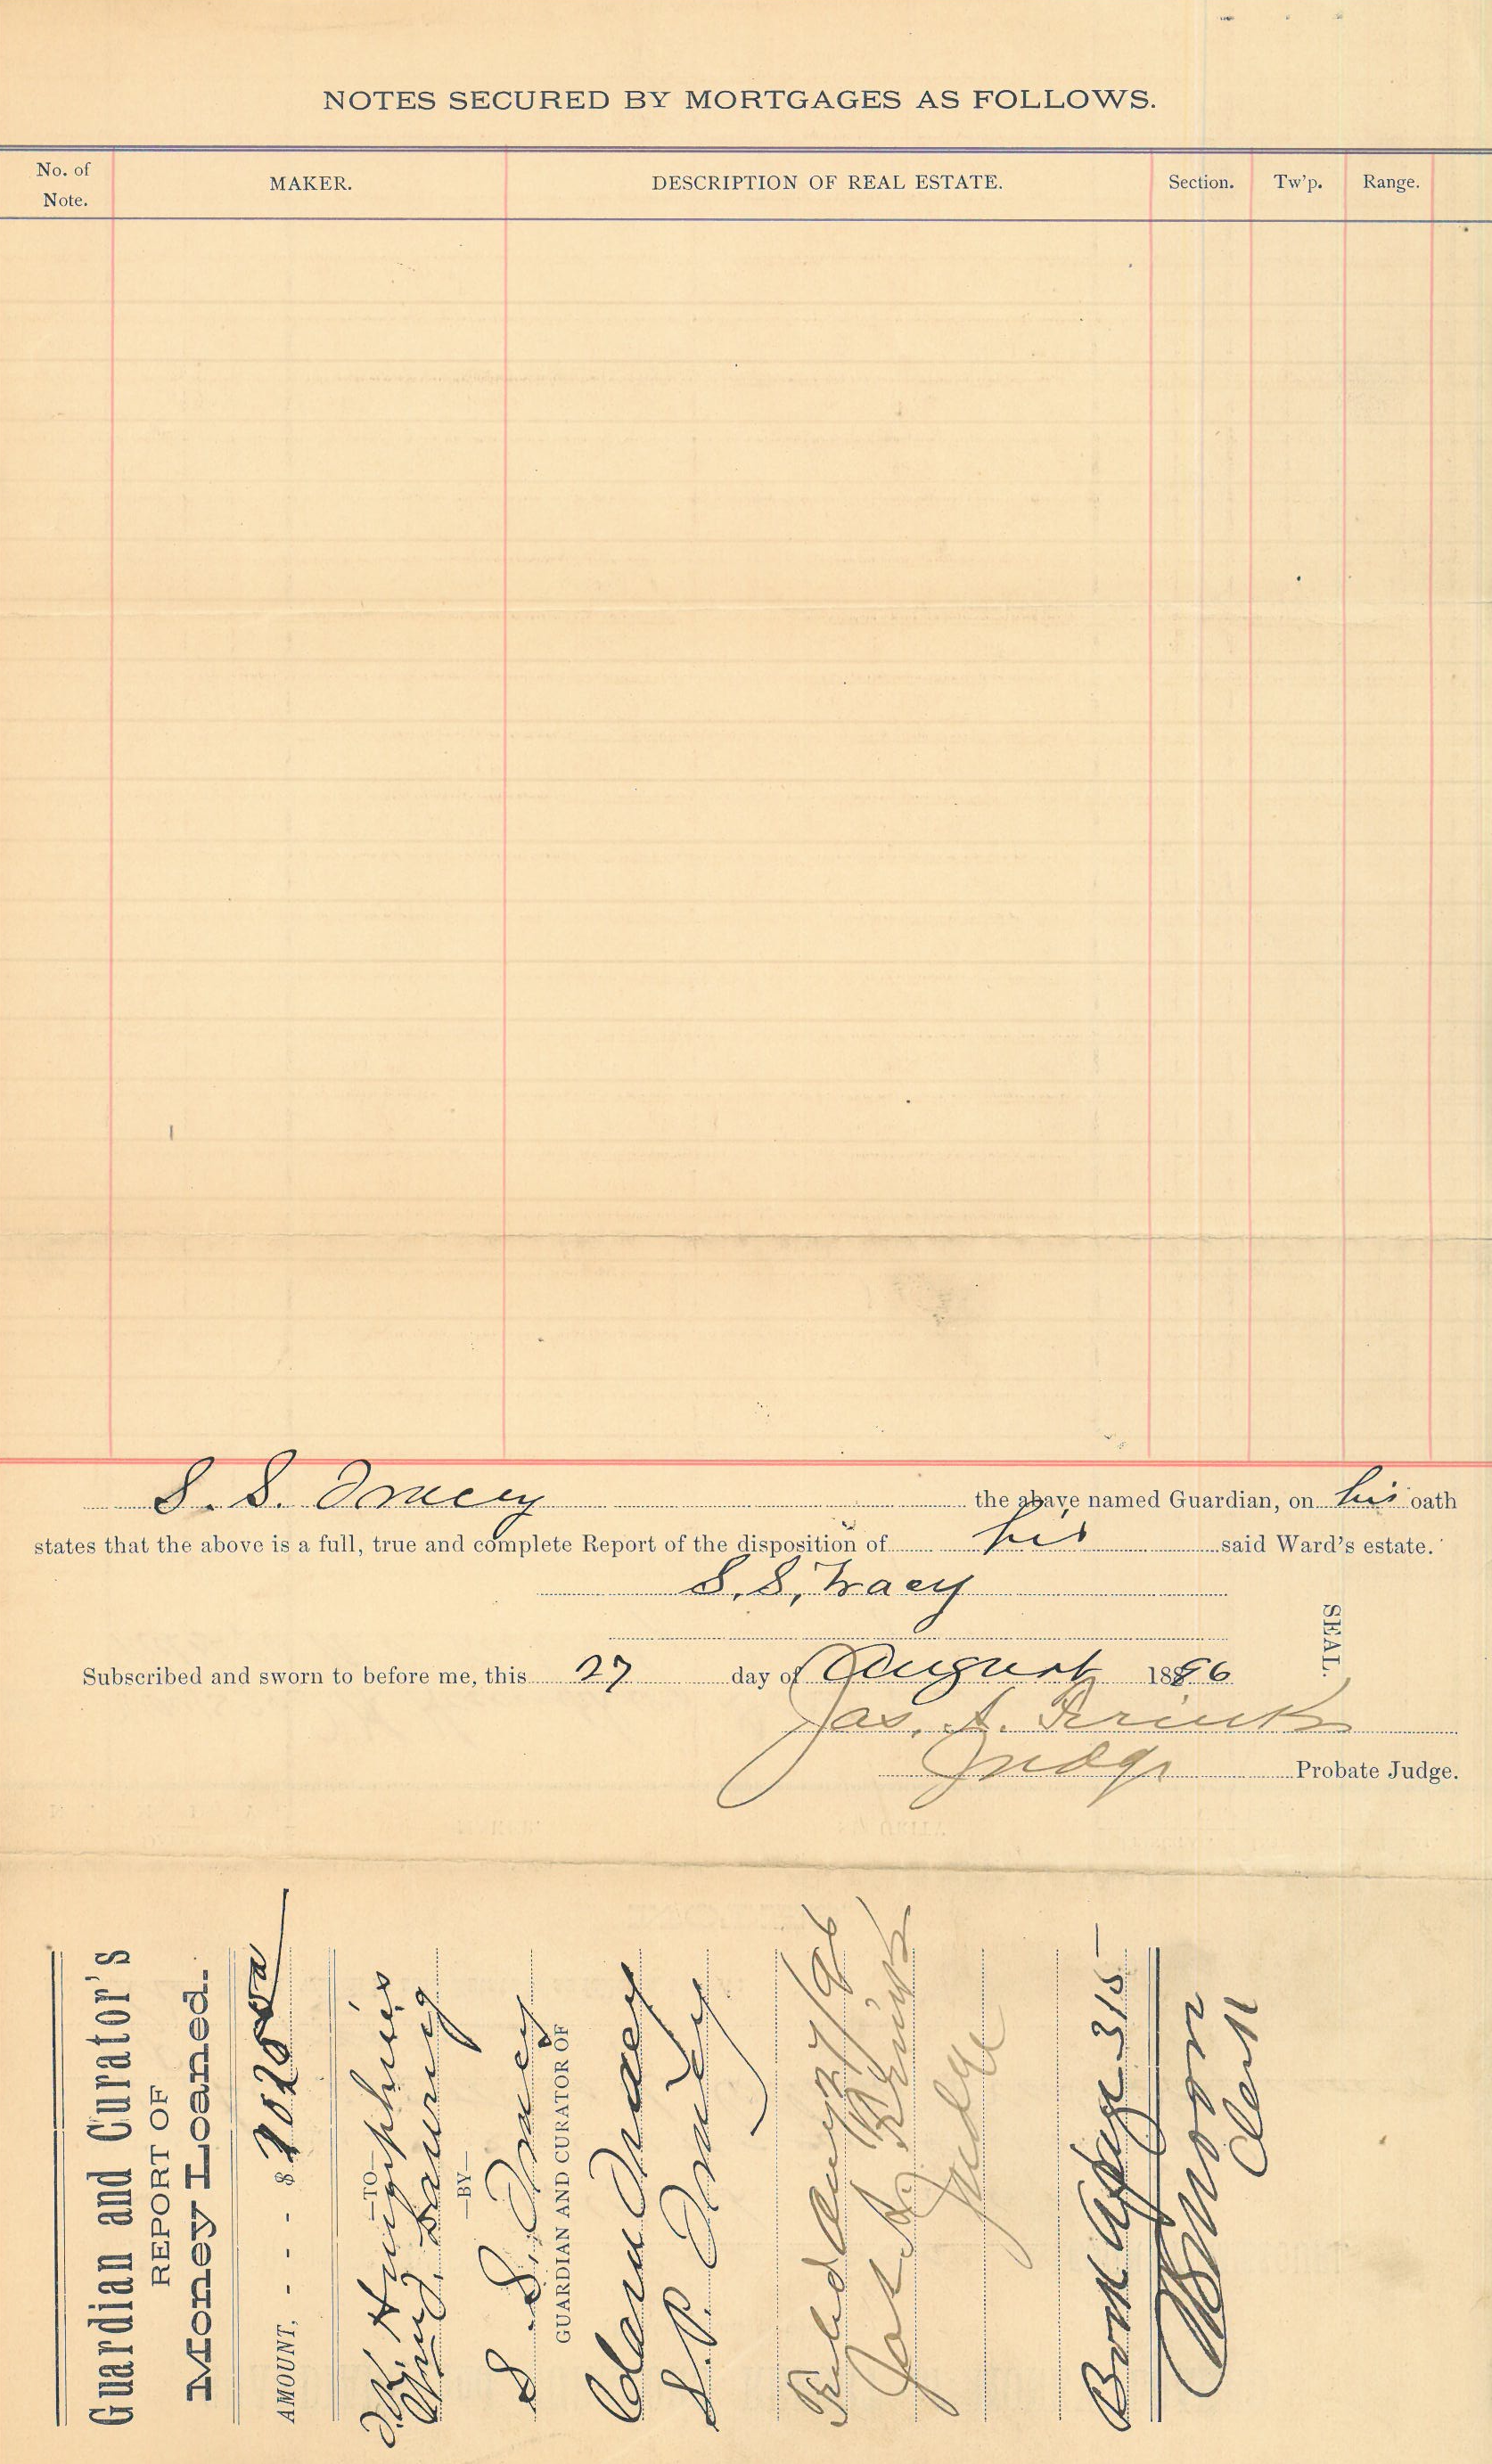 NOTES SECURED BY MORTGAGES AS FOLLOWS.
No. of Note.
MAKER.
DESCRIPTION OF REAL ESTATE.
Section.
Tw'p.
Range.
S. S. Tracy the above named Guardian, on his oath
states that the above is a full, true and complete Report of the disposition of his said Ward's estate.
S. S. Tracy
SEAL.
Subscribed and sworn to before me, this 27 day of August 1896
Jas. A.
Judge Probate Judge.
Guardian and Curator's
REPORT OF
Money Loaned.
AMOUNT, - - - $
—TO—
Humphries
—BY—
S. S. Tracy
GUARDIAN AND CURATOR OF
Clara Tracy
S. P. Tracy
Filed Aug 27/96
Jas A.
Judge
Book Page 315
Clerk